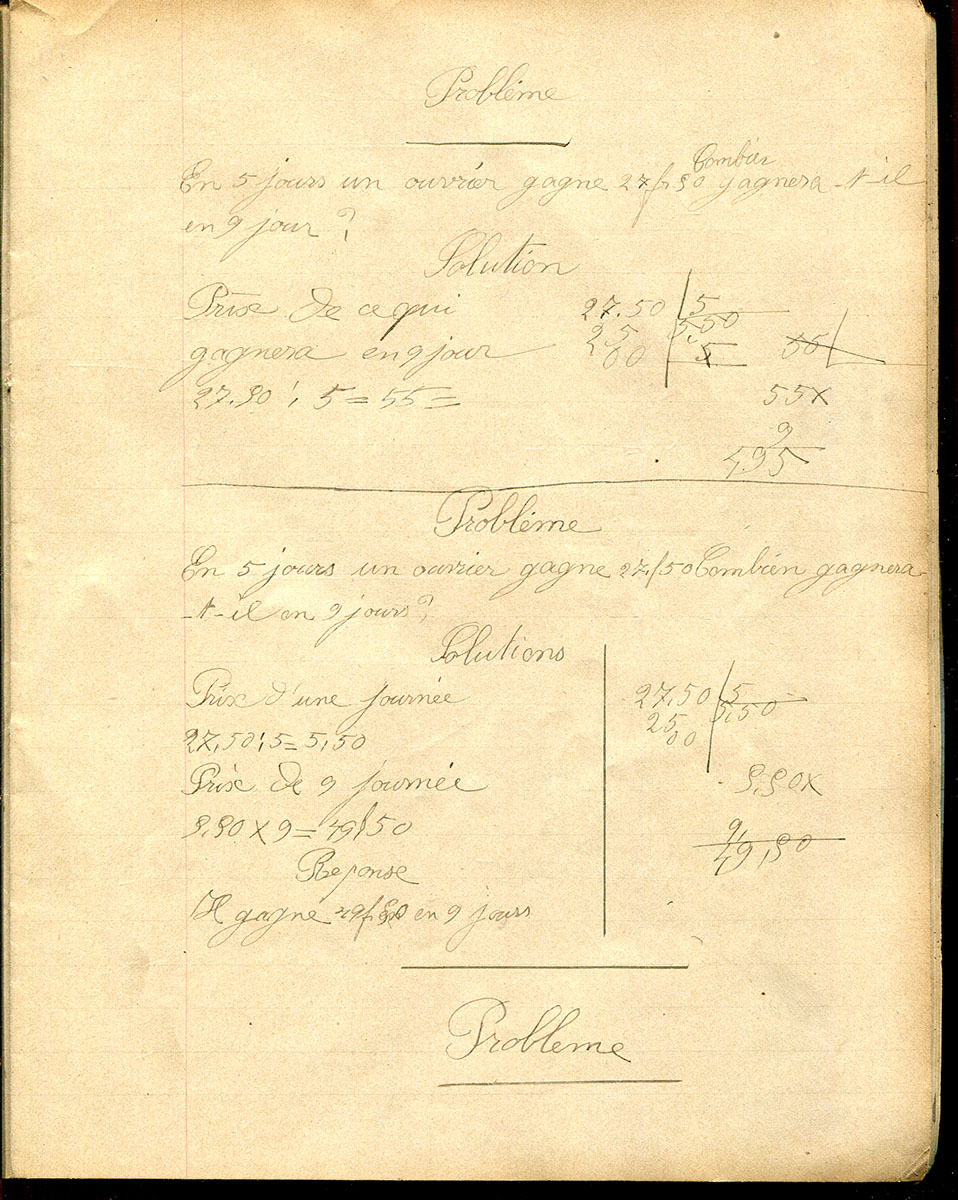 Problème
En 5 jours un ouvrier gagne 27f,50 Combien gagnera-t-il
en 9 jour ?
Solution
Prix de ce qui
gagnera en 9 jour
27.50 : 5 = 55 =
27.50 5
25 5,50
00 5
55
55x
9
495
Problème
En 5 jours un ouvrier gagne 27f50 Combien gagnera-
-t-il en 9 jours ?
Solutions
Prix d'une journée
27,50 : 5 = 5,50
Prix de 9 journée
5,50 x 9 = 49f50
Reponse
Il gagne 49f,50 en 9 jours
27,50 5
25 5,50
00
5,50x
9
49,50
Probleme